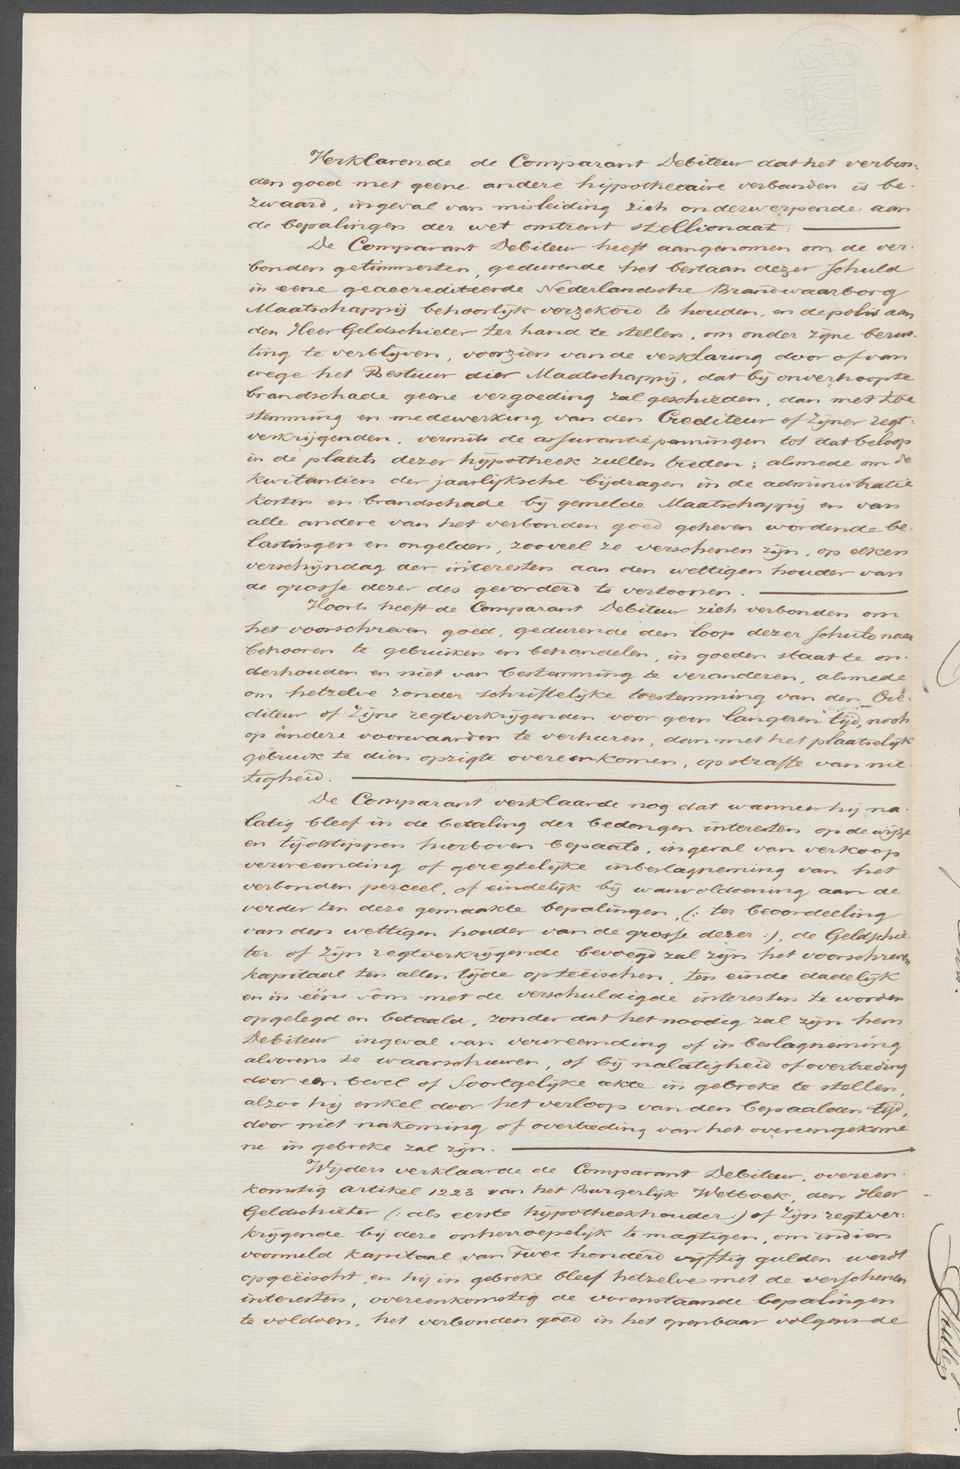 Verklarende de Comparant Debiteur dat het verbon-
den goed met geene andere hijpothecaire verbanden is be-
zwaard, ingeval van misleiding zich onderwerpende aan
de bepalingen der wet omtrent stellionaat.
De Comparant Debiteur heeft aangenomen om de ver-
bonden getimmerten, gedurende het bestaan dezer schuld
in eene geaccrediteerde Nederlandsche Brandwaarborg
Maatschappij behoorlijk verzekerd te houden, en de polis aan
den Heer Geldschieter ter hand te stellen, om onder zijne berus-
ting te verblijven, voorzien van de verklaring door of van
wege het Bestuur dier Maatschappij, dat bij onverhoopte
brandschade geene vergoeding zal geschieden, dan met toe
stemming en medewerking van den Crediteur of zijner regt-
verkrijgenden, vermits de assurantiepenningen tot dat beloop
in de plaats dezer hijpotheek zullen treden; alsmede om de
kwitantien der jaarlijksche bijdragen in de administratie
kosten en brandschade bij gemelde Maatschappij en van
alle andere van het verbonden goed geheven wordende be-
lastingen en ongelden, zooveel ze verschenen zijn, op elken
verschijndag der interesten aan den wettigen houder van
de grosse dezer des gevorderd te vertoonen.
Voorts heeft de Comparant Debiteur zich verbonden om
het voorschreven goed, gedurende den loop dezer schuld naar
behooren te gebruiken en behandelen, in goeden staat te on-
derhouden en niet van bestemming te veranderen, alsmede
om hetzelve zonder schriftelijke toestemming van den Cre-
diteur of zijne regtverkrijgenden voor geen langeren tijd, noch
op andere voorwaarden te verhuren, dan met het plaatselijk
gebruik te dien opzigte overeenkomen, op straffe van nie-
tigheid.
De Comparant verklaarde nog dat wanneer hij na-
latig bleef in de betaling der bedongen interesten op de wijze
en tijdstippen hierboven bepaald, ingeval van verkoop
vervreemding of geregtelijke inbeslagneming van het
verbonden perceel, of eindelijk bij wanvoldoening aan de
verder ten deze gemaakte bepalingen, (: ter beoordeeling
van den wettigen houder van de grosse dezer :), de Geldschie-
ter of zijn regtverkrijgende bevoegd zal zijn het voorschreven
kapitaal ten allen tijde opteëischen, ten einde dadelijk
en in ééne som met de verschuldigde interesten te worden
opgelegd en betaald, zonder dat het noodig zal zijn hem
Debiteur ingeval van vervreemding of inbeslagneming
alvorens te waarschuwen, of bij nalatigheid of overtreding
door een bevel of soortgelijke akte in gebreke te stellen,
alzoo hij enkel door het verloop van den bepaalden tijd,
door niet nakoming of overtreding van het overeengekome
ne in gebreke zal zijn.
Wijders verklaarde de Comparant Debiteur, overeen-
komstig artikel 1223 van het Burgerlijk Wetboek, den Heer
Geldschieter (: als eerste hijpotheekhouder :) of zijn regtver-
krijgende bij deze onherroepelijk te magtigen, om indien
voormeld kapitaal van Twee honderd vijftig gulden werdt
opgeëischt, en hij in gebreke bleef hetzelve met de verschenen
interesten, overeenkomstig de vorenstaande bepalingen
te voldoen, het verbonden goed in het openbaar volgens de